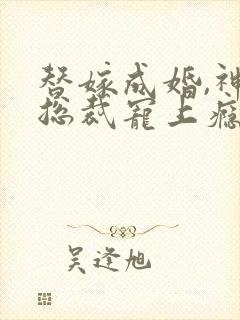 替嫁成婚,神
总裁宠上瘾
吴逢旭